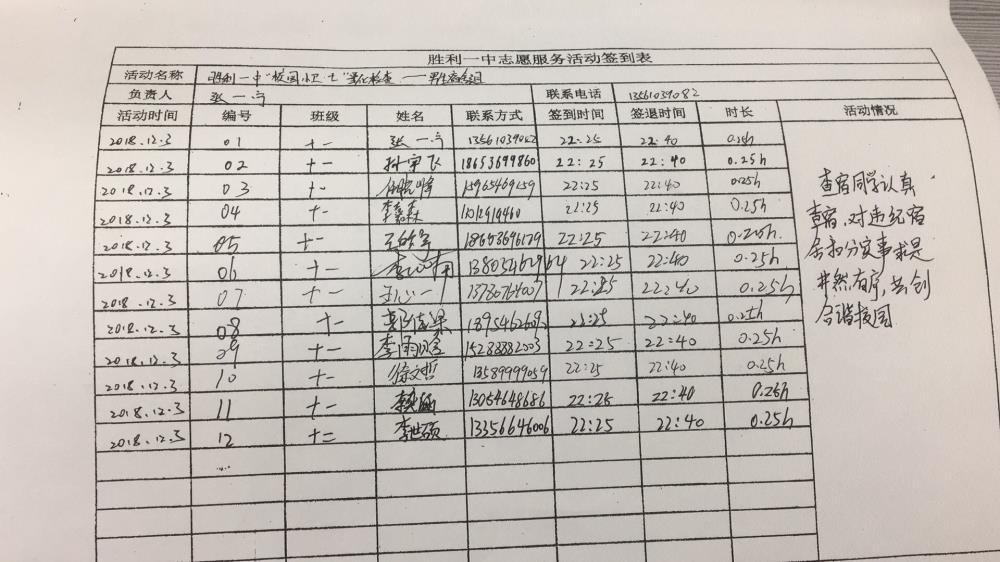 胜利一中志愿服务活动签到表
活动名称 胜利一中"校园卫士"量化检查——男生宿舍组
负责人 张一宁 联系电话 13561039082
活动时间 编号 班级 姓名 联系方式 签到时间 签退时间 时长 活动情况
2018.12.3 01 十一 张一宁 22:25 22:40 0.25h
2018.12.3 02 十一 18653699860 22:25 22:40 0.25h
2018.12.3 03 十一 15965469159 22:25 22:40 0.25h
2018.12.3 04 十一 22:25 22:40 0.25h
2018.12.3 05 十一 22:25 22:40 0.25h
2018.12.3 06 十一 22:25 22:40 0.25h
2018.12.3 07 十一 22:25 22:40 0.25h
2018.12.3 08 十一 22:25 22:40 0.25h
2018.12.3 09 十一 15288882003 22:25 22:40 0.25h
2018.12.3 10 十一 徐文哲 13589999059 22:25 22:40 0.25h
2018.12.3 11 十一 13054648686 22:25 22:40 0.25h
2018.12.3 12 十二 李世硕 13356646006 22:25 22:40 0.25h
...
查宿同学认真
查宿,对违纪宿
舍扣分实事求是
井然有序,共创
合谐校园